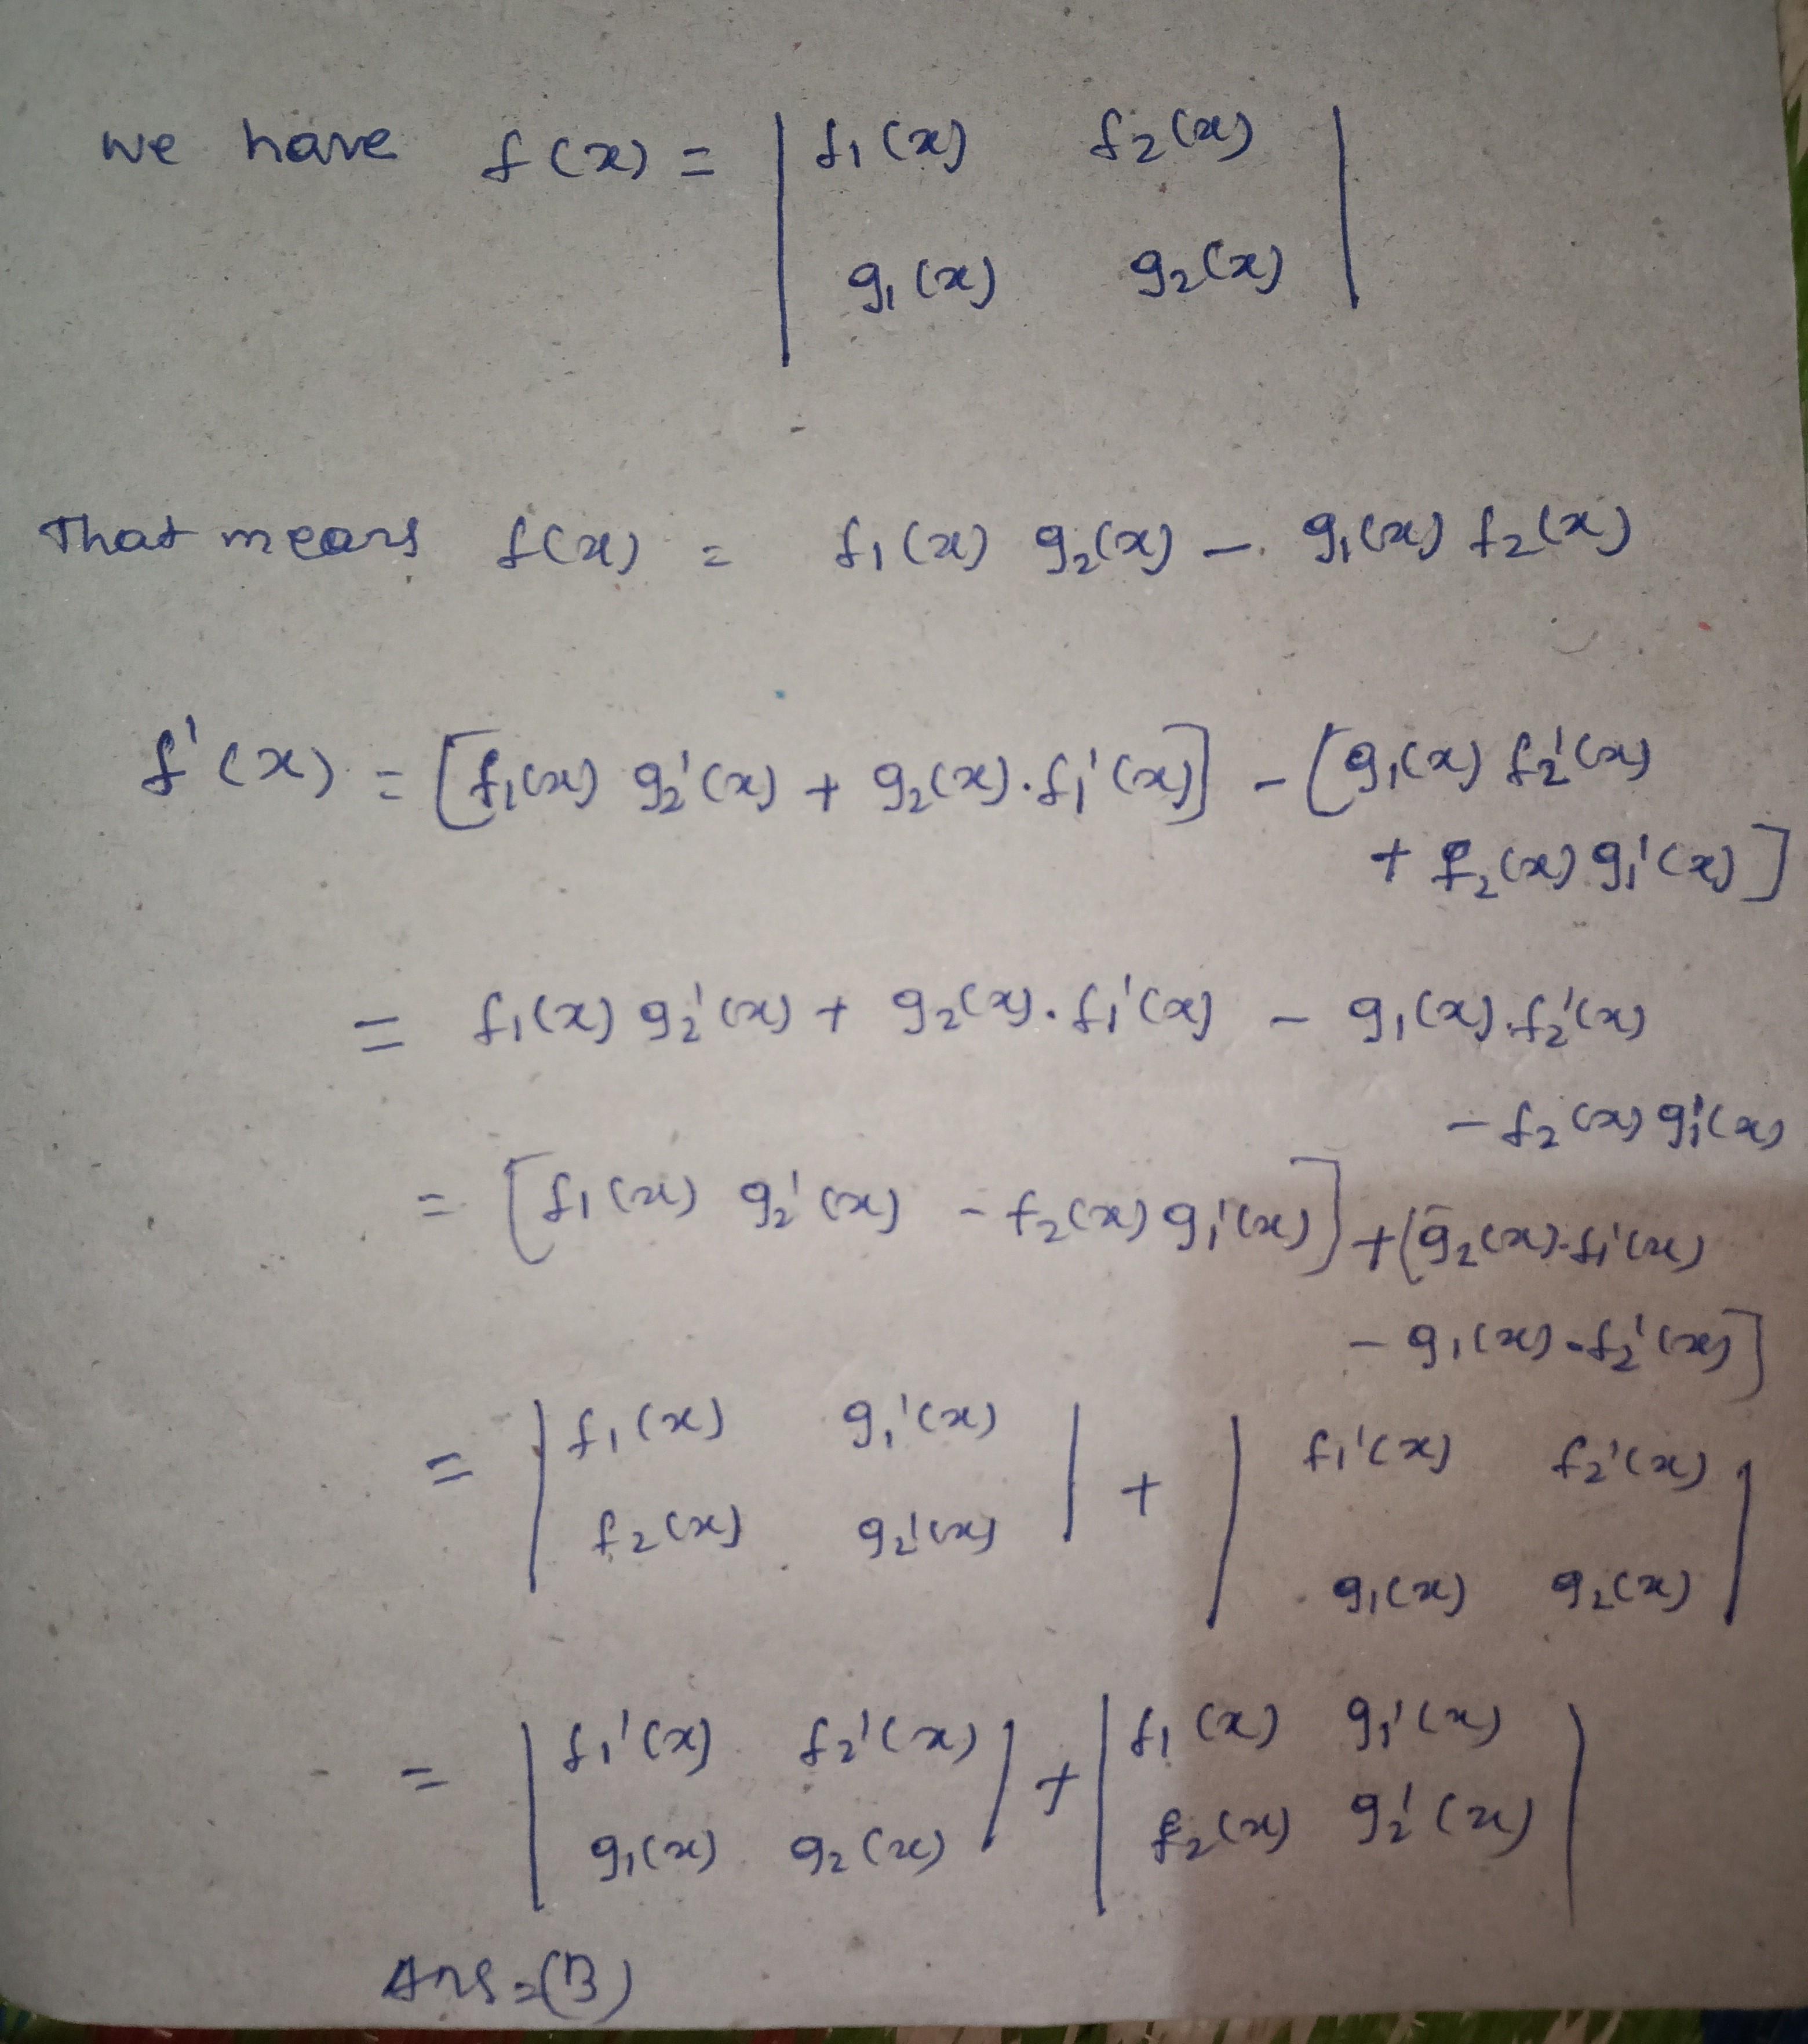 we have f(x) = | f₁(x) f₂(x) |
g₁(x) g₂(x)
That means f(x) = f₁(x) g₂(x) - g₁(x) f₂(x)
f'(x) = [f₁(x) g₂'(x) + g₂(x).f₁'(x)] - [g₁(x) f₂'(x)
+ f₂(x) g₁'(x)]
= f₁(x) g₂'(x) + g₂(x).f₁'(x) - g₁(x).f₂'(x)
- f₂(x) g₁'(x)
= [f₁(x) g₂'(x) - f₂(x) g₁'(x)] + [g₂(x).f₁'(x)
- g₁(x).f₂'(x)]
= | f₁(x) g₁'(x) | + | f₁'(x) f₂'(x) |
f₂(x) g₂'(x) g₁(x) g₂(x)
= | f₁'(x) f₂'(x) | + | f₁(x) g₁'(x) |
g₁(x) g₂(x) f₂(x) g₂'(x)
Ans = (B)